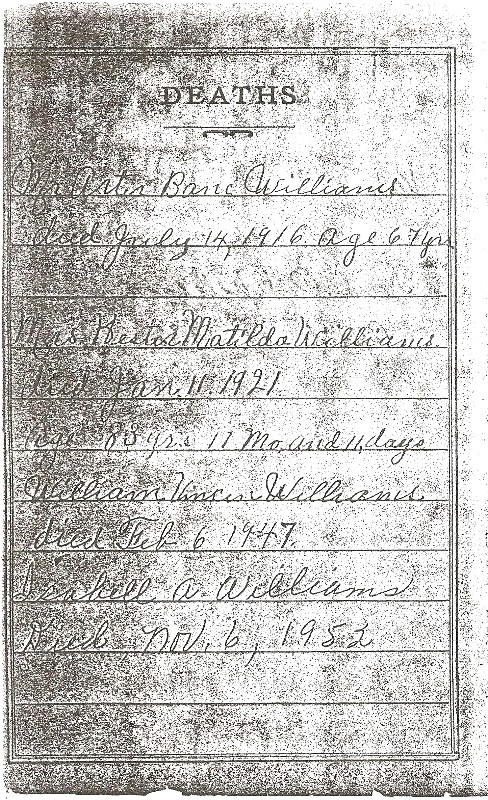 DEATHS
Mr Banc Williams
died July 14, 1916 age 67 yrs
Mrs. Hester Matilda Williams.
died Jan 11. 1921
Age 83 yrs 11 Mo, and 11, days
William Williams.
died Feb 6 1947.
Isabell A Williams
Died Nov. 6, 1952